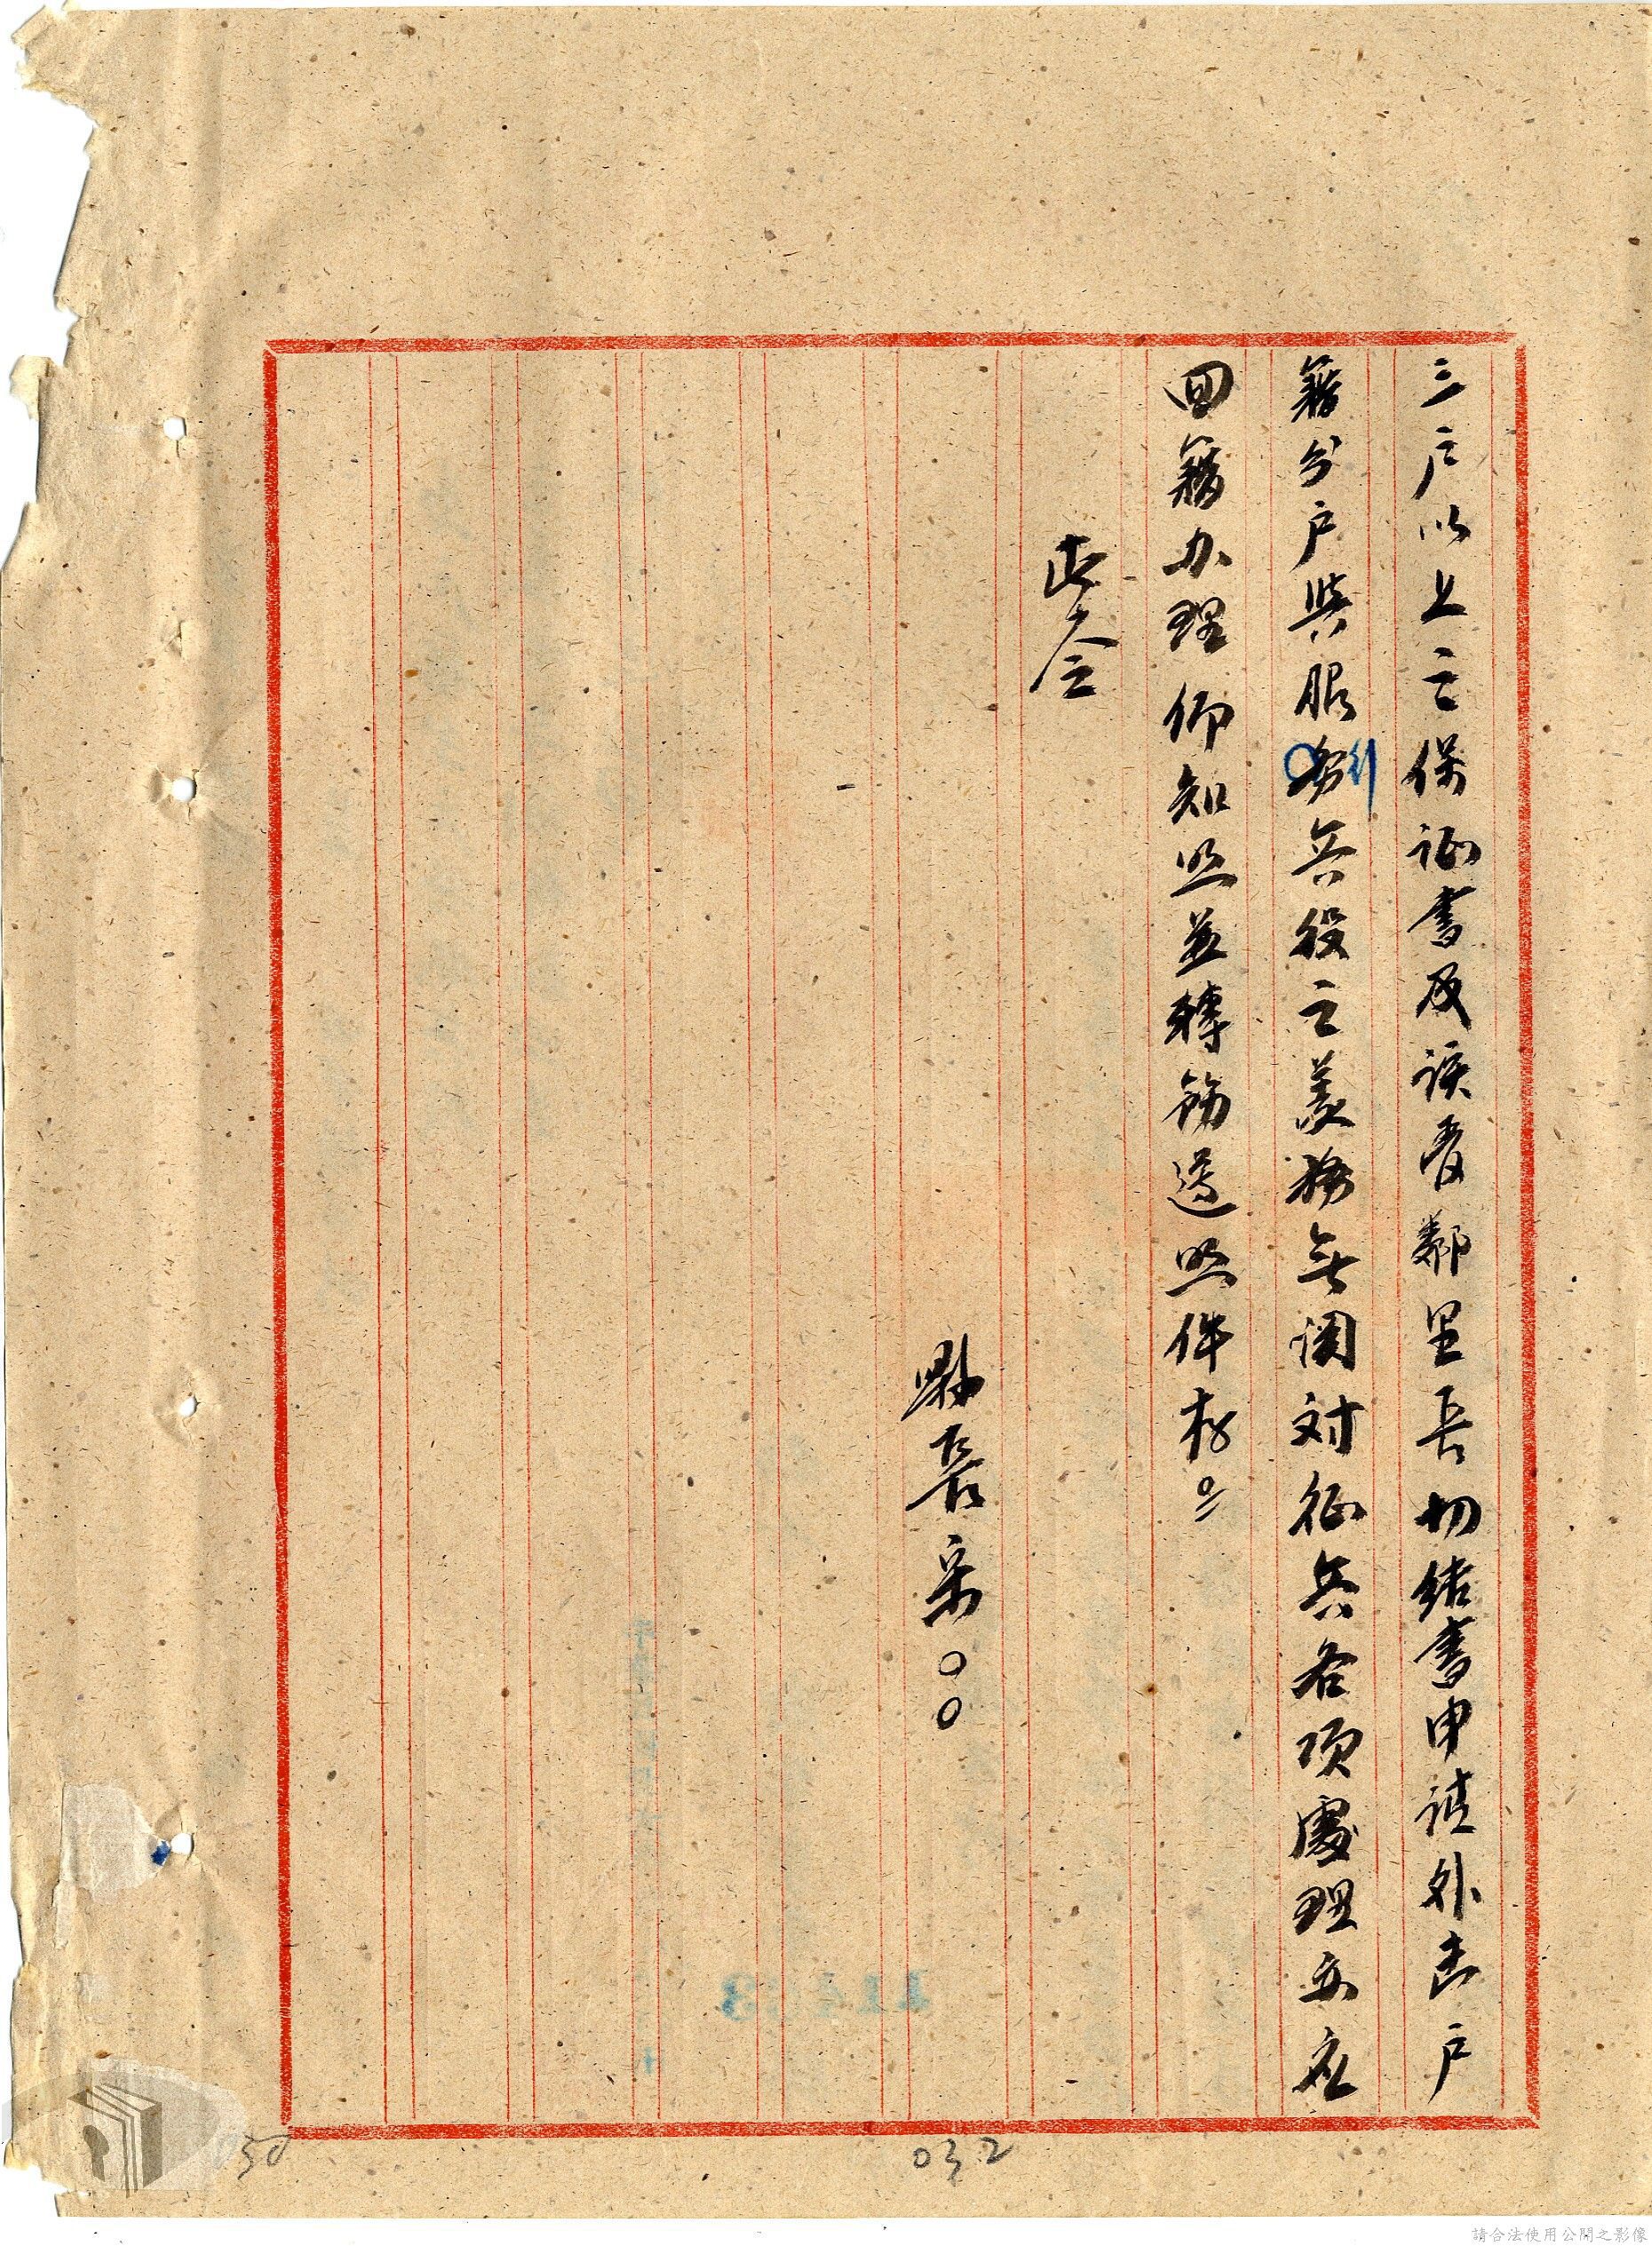 三户以上之保证書及該管鄰里長切结書申請外其户
籍分户與服务行兵役之義務無関対征兵各项處理亦应
回籍办理仰知照並轉飭遵照件存。
此令
縣長宋〇〇
032
請合法使用公開之影像